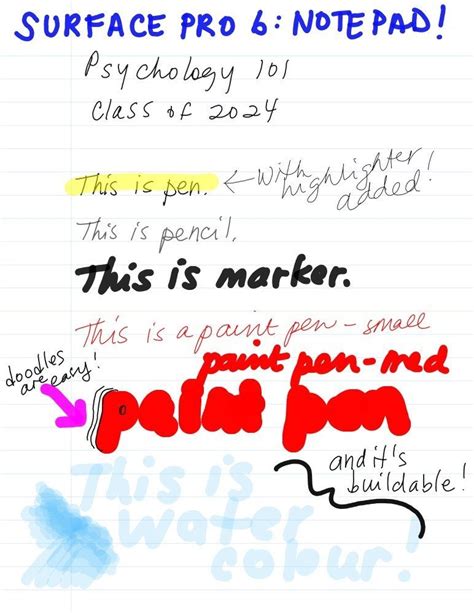 SURFACE PRO 6: NOTEPAD!
Psychology 101
Class of 2024
This is pen. ← with highlighter added!
This is pencil.
This is marker.
This is a paint pen - small
paint pen-med
doodles are easy!
paint pen
and it's buildable!
This is
water
colour!